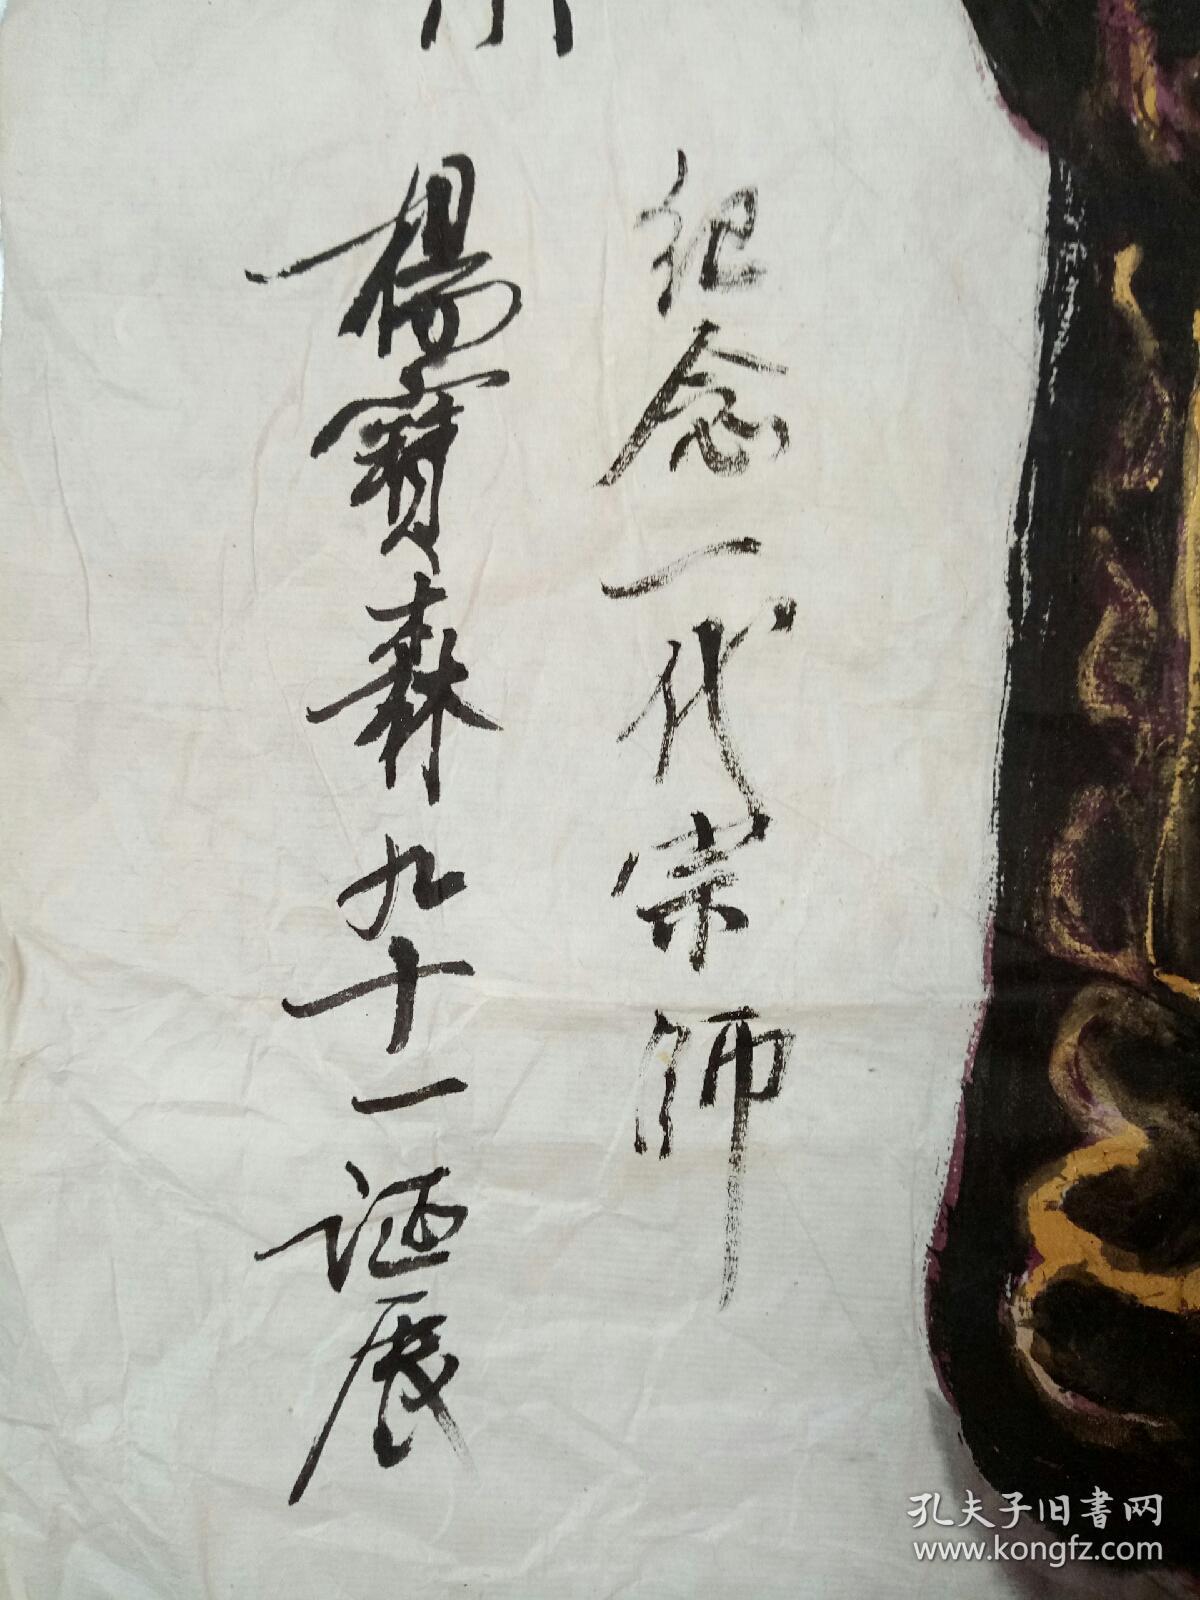 纪念一代宗师
楊寶森九十一诞辰
孔夫子旧書网
www.kongfz.com